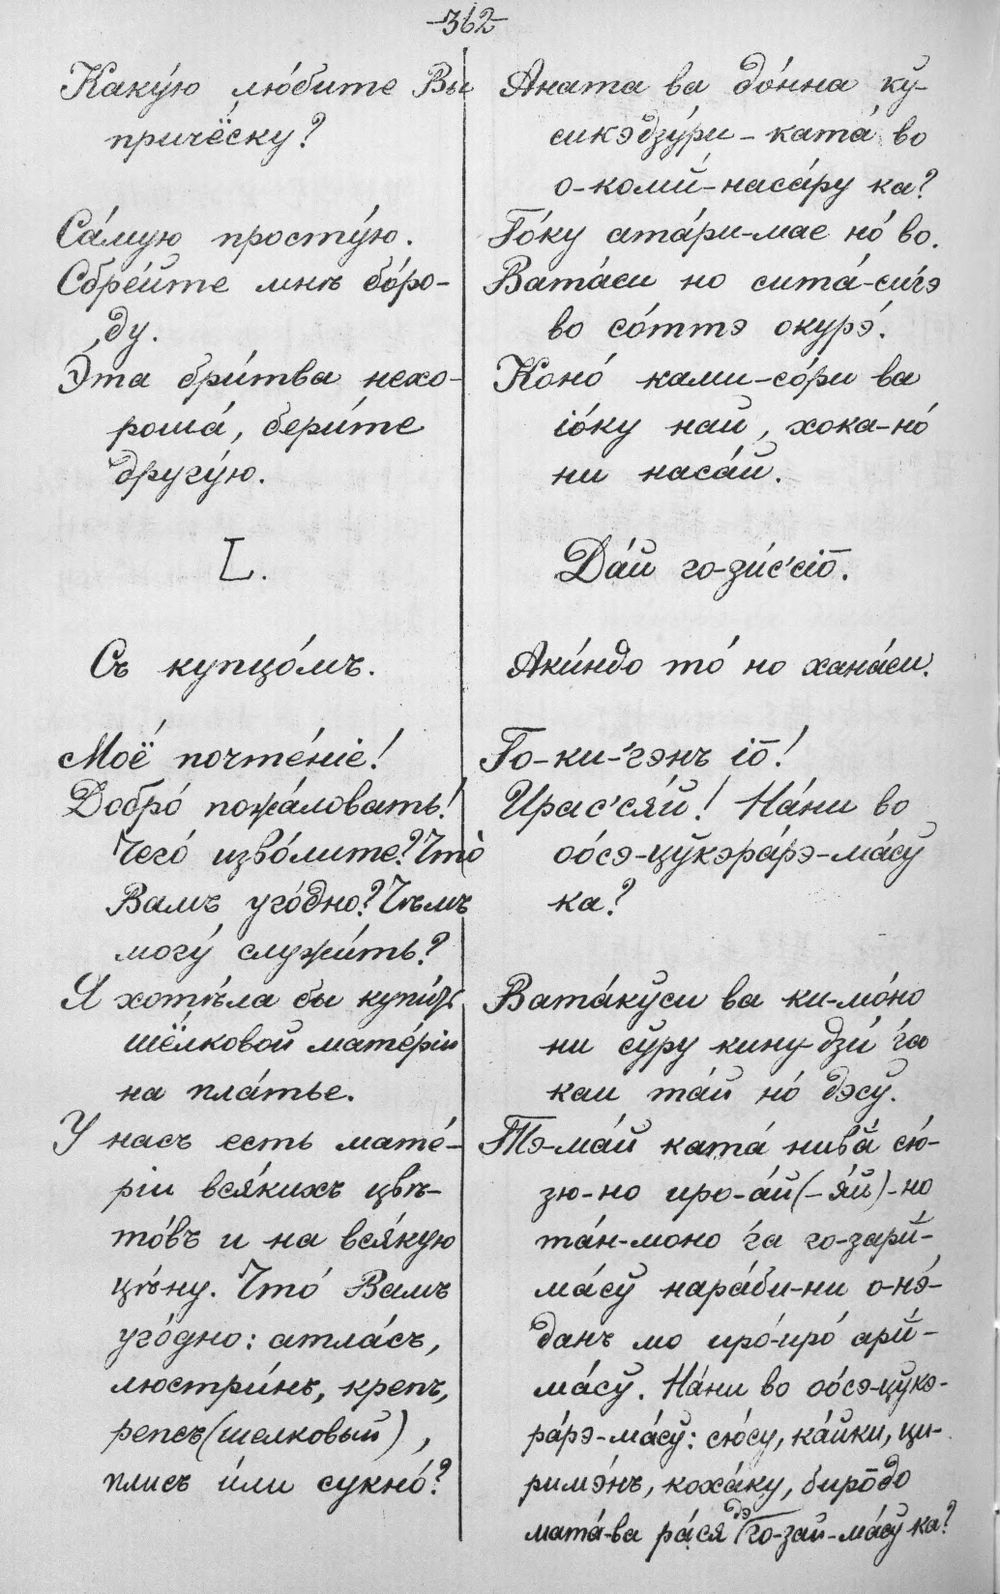 -362-
Каку́ю лю́бите Вы
причёску?
Са́мую просту́ю.
Сбре́йте мнѣ бо́ро-
ду.
Э́та бри́тва нехо-
роша́, бери́те
другу́ю.
L.
Съ купцо́мъ.
Моё почте́ніе!
Добро́ пожа́ловать!
Чего́ изво́лите? Что̀
Вамъ уго́дно? Чѣмъ
могу́ служи́ть?
Я хотѣ́ла бы купи́ть
шёлковой мате́ріи
на пла́тье.
У насъ есть мате́-
ріи вся́кихъ цвѣ-
то́въ и на вся́кую
цѣ́ну. Что́ Вамъ
уго́дно: атла́съ,
люстри́нъ, крепъ,
репсъ (шелковый),
плисъ и́ли сукно́?
Аната ва до́нна ку-
сикэдзу́ри-ката́ во
о-коми́-наса́ру ка?
Го́ку ата́ри-мае но́ во.
Вата́си но сита́-си́гэ
во со́ттэ окурэ́.
Коно́ ками-со́ри ва
іо́ку най, хока-но́
ни наса́й.
Да́й го-зи́с'сіо̄.
Аки́ндо то́ но хана́си.
Го-ки-'гэнъ іо̄!
Ирас'ся́й! На́ни во
оо́сэ-цӯкэра́рэ-ма́сӯ
ка?
Вата́кӯси ва ки-мо́но
ни сӯру кину дзи́ 'га
каи та́й но́ дэсӯ.
Тэ-ма́й ката́ нива́ сю́-
зю-но иро-а́й(-я́й)-но
та́н-моно 'га го-зари̌-
ма́сӯ нара́би-ни о-нэ́-
данъ мо иро́-иро́ ари̌-
ма́сӯ. На́ни во оо́сэ-цӯкэ-
ра́рэ-ма́сӯ: сю́су, ка́йки, ци-
римэ́нъ, коха́ку, биро̄до
мата́-ва ра́ся дэ го-зай-ма́сӯ ка?